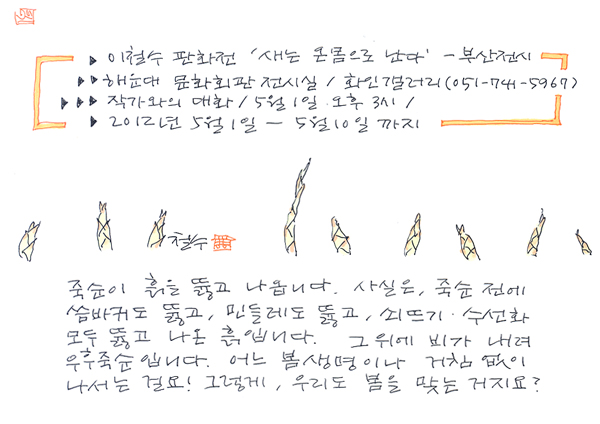 ▶ 이철수 판화전 '새는 온몸으로 난다' - 부산전시
▶▶ 해운대 문화회관 전시실 / 화인갤러리(051-741-5967)
▶▶▶ 작가와의 대화 / 5월 1일 오후 3시 /
▶ 2012년 5월 1일 - 5월 10일 까지
철수
죽순이 흙을 뚫고 나옵니다. 사실은, 죽순 전에
씀바귀도 뚫고, 민들레도 뚫고, 쇠뜨기·수선화
모두 뚫고 나온 흙입니다. 그 위에 비가 내려
우후죽순입니다. 어느 봄생명이나 거침 없이
나서는 걸요! 그렇게, 우리도 봄을 맞는 거지요?